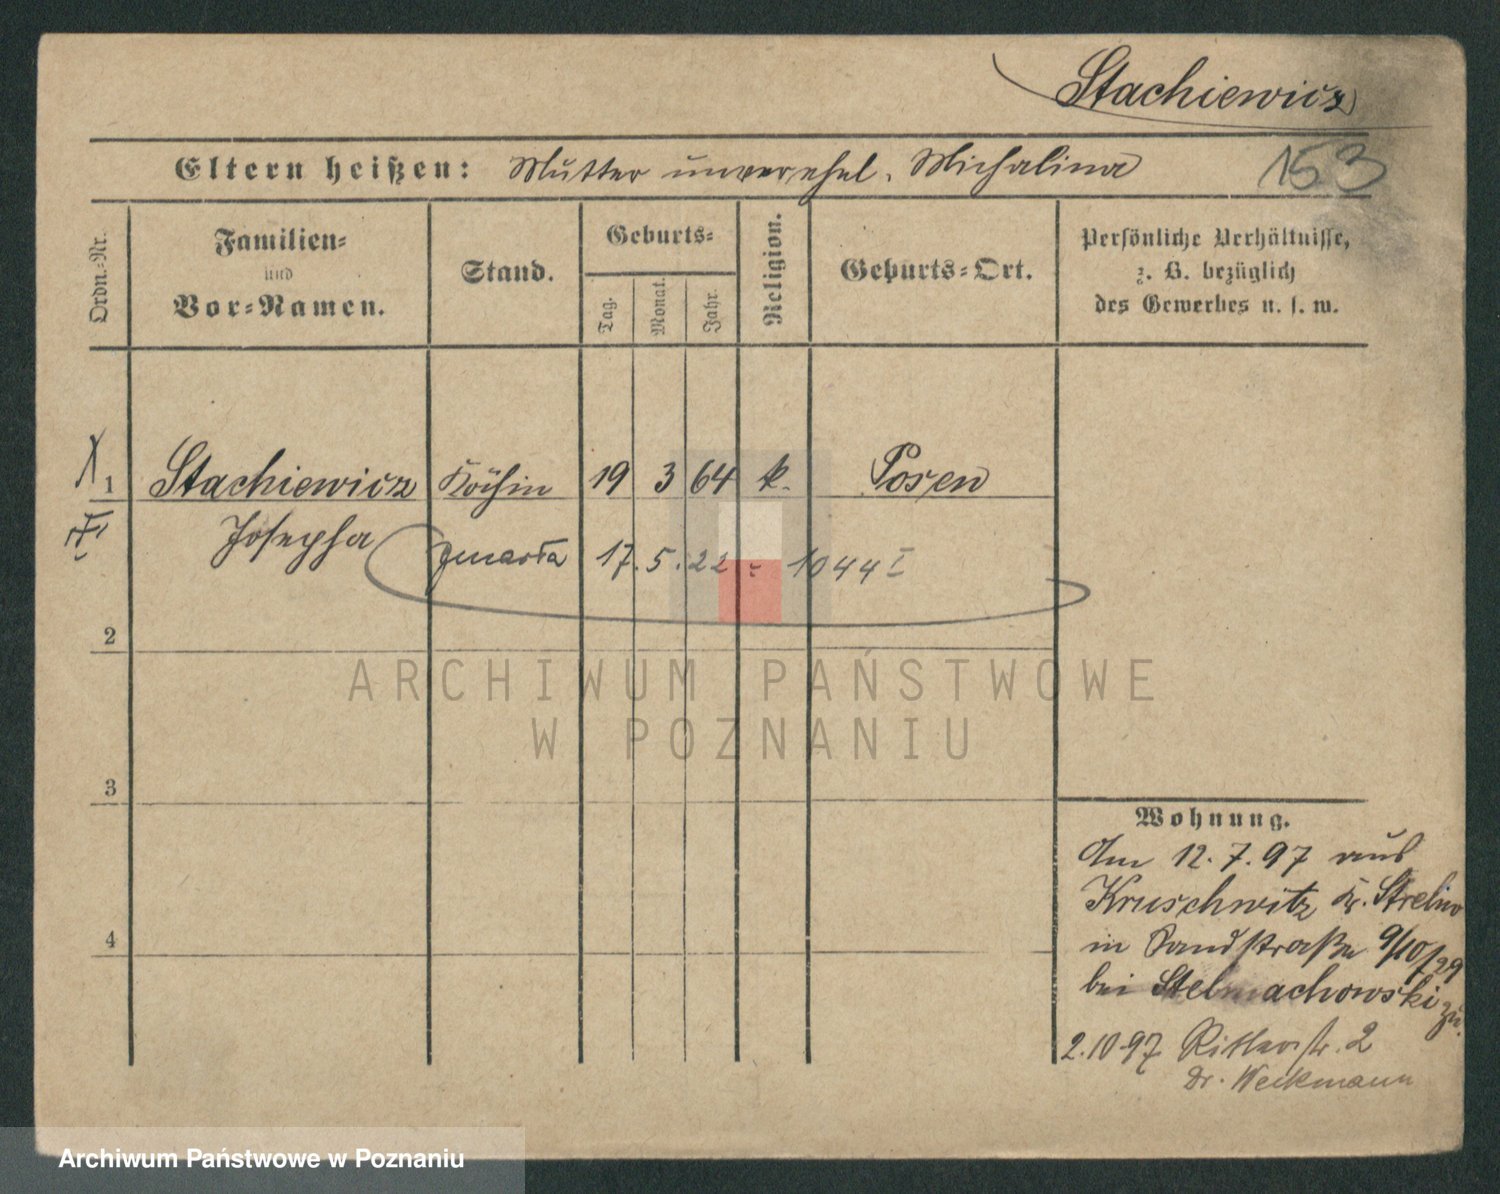 Stachiewicz
153
Eltern heißen: Mutter unverehel. Michalina
Ordn.-Nr.
Familien-
und
Vor-Namen.
Stand.
Geburts-
Tag.
Monat.
Jahr.
Religion.
Geburts-Ort.
Persönliche Verhältnisse,
z. B. bezüglich
des Gewerbes u. s. w.
1 Stachiewicz Köchin 19 3 64 k. Posen
Josepha 17. 5. 22 1044 I
2
3
4
ARCHIWUM PAŃSTWOWE
W POZNANIU
Wohnung.
Am 12. 7. 97 aus
Kruschwitz Kr. Strelno
in Sandstraße 9/10
bei Stelmachowski zu.
2.10.97 Ritterstr. 2
Dr. Weckmann
Archiwum Państwowe w Poznaniu